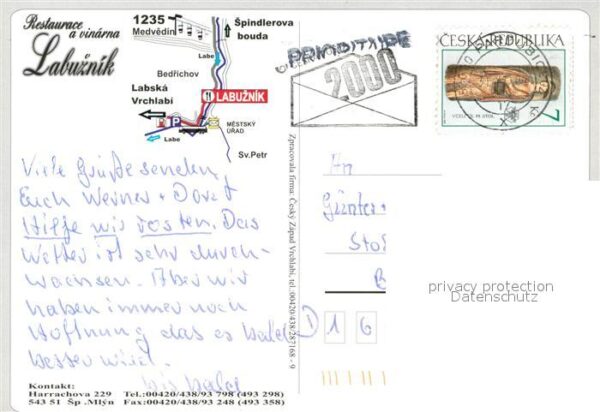 Restaurace
a vinárna
Labužník
1235
Medvědín
Špindlerova
bouda
Labe
Bedřichov
Labská
Vrchlabí
LABUŽNÍK
P
MĚSTSKÝ
ÚŘAD
Labe
Sv.Petr
PRIORITAIRE
2000
ČESKÁ REPUBLIKA
7 Kč
Viele Grüße senden
Euch Werner + Dorit
Hilfe wir rosten. Das
Wetter ist sehr durch-
wachsen. Aber wir
haben immer noch
Hoffnung das es bald
besser wird.
bis bald
Zpracovala firma: Český Západ Vrchlabí, tel. 00420/438/287168 - 9
An
Günter +
D 1 6
privacy protection
Datenschutz
Kontakt:
Harrachova 229 Tel.:00420/438/93 798 (493 298)
543 51 Šp .Mlýn Fax:00420/438/93 248 (493 358)